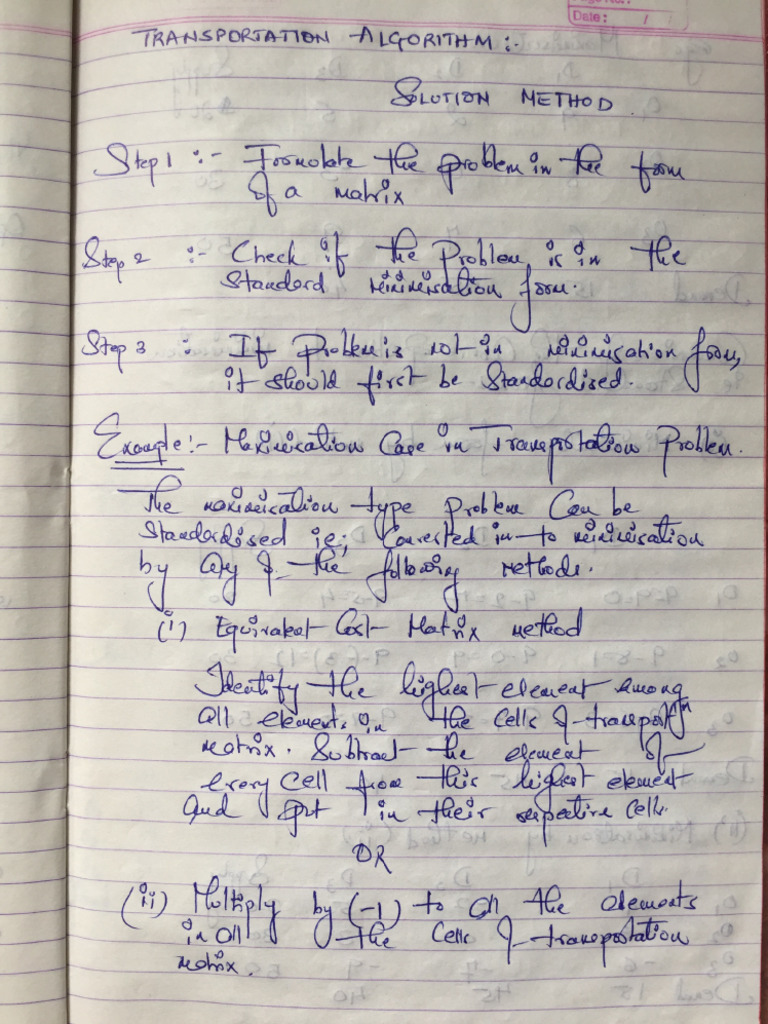 Date: / /
TRANSPORTATION ALGORITHM :-
SOLUTION METHOD.
Step 1 :- Formulate the problem in the form
of a matrix
Step 2 :- Check if the Problem is in the
Standard minimisation form.
Step 3 : If Problem is not in minimisation form,
it should first be Standardised.
Example :- Maximisation Case in Transportation Problem.
The maximisation type problem Can be
Standardised ie; Converted in-to minimisation
by any of the following methods.
(i) Equivalent Cost Matrix method
Identify the highest element among
all elements in the cells of transportn
matrix. Subtract the element of
every cell from this highest element
and put in their respective cells.
OR
(ii) Multiply by (-1) to all the elements
in all the cells of transportation
matrix.